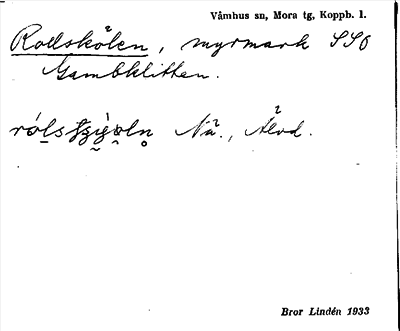 Våmhus sn, Mora tg, Koppb. l.
Rollskölen, myrmark SSO
Gambklitten.
Nå., Älvd.
Bror Lindén 1933